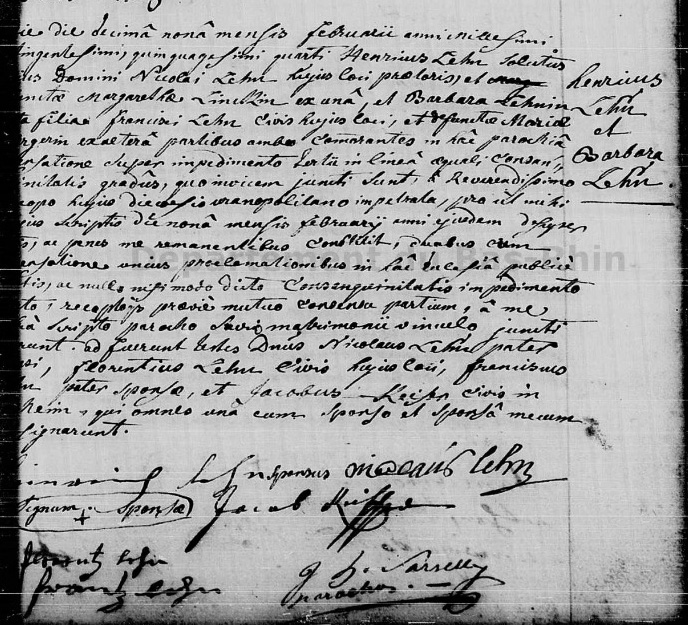 die decimâ nonâ mensis februarii anni millesimi
tingentesimi, quinquagesimi quarti Henricus Lehn Solutus
Domini Nicolai Lehn hujus loci praetoris, et
Margaretha Zincklin ex unâ, et Barbara Lehnin
filia francisci Lehn Civis hujus loci, et defunctae Mariae
ex alterâ partibus ambo Comorantes in hâc parochiâ
ensatione Super impedimento tertii in lineâ aequali Consan,
initatis gradûs, quo invicem juncti Sunt, à Reverendissimo
copo hujus dioecesis impetrata, prout mihi
ejus Scriptis die nonâ mensis februarii anni ejusdem
ac penes me remanentibus Constitit, duabus cum
ensatione unius proclamationibus in hâc Ecclesiâ publicè
tis, ac nullo nisi modo dicto Consanguinitatis impedimento
to, recepto prôviè mutuo Consensu partium, à me
Scripto parocho Sacro matrimonii vinculo juncti
erunt. adfuerunt testes Dnus Nicolaus Lehn pater
si, florentius Lehn Civis hujus loci, franciscus
pater Sponsae, et Jacobus Civis in
heim, qui omnes unâ cum Sponso et Sponsâ mecum
signarunt.
henricus
Lehn
et
Barbara
Lehn.
Departement du Bas-Rhin
Lehn sponsus nicolaus lehn
Signum + Sponsae Jacob
lehn
frantz lehn
parochus.